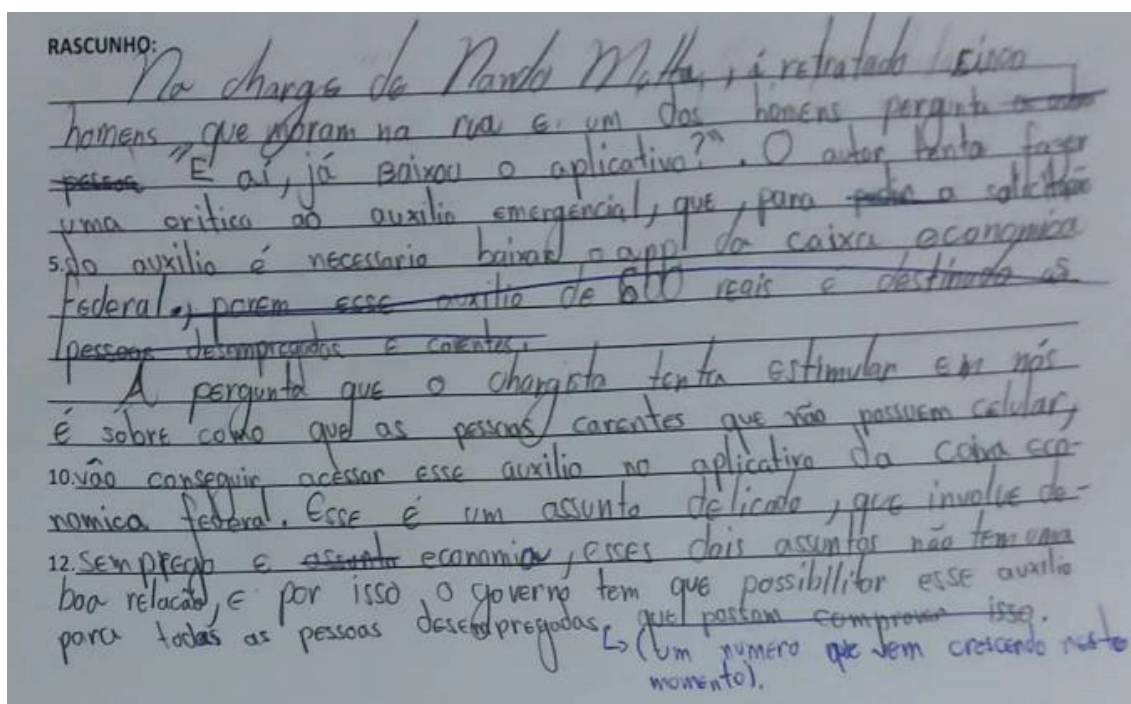 RASCUNHO:
Na charge de Nando Motta, é retratado cinco
homens, que moram na rua e um dos homens pergunta
pessoa "E aí, já Baixou o aplicativo?". O autor tenta fazer
uma critica ao auxilio emergencial, que, para pedir a solicitação
5.do auxilio é necessario baixar o app da caixa economica
Federal., porem esse auxilio de 600 reais e destinado as
pessoas desempregadas e carentes.
A pergunta que o chargista tenta estimular em nós
é sobre como que as pessoas carentes que não possuem celular,
10.vão conseguir acessar esse auxilio no aplicativo da caixa eco-
nomica federal. Esse é um assunto delicado, que involve de-
12.semprego e assunto economia, esses dois assuntos não tem uma
boa relacão, e por isso o governo tem que possibillitar esse auxilio
para todas as pessoas desempregadas, que possam comprovar isso.
(um numero que vem crescendo neste
momento).